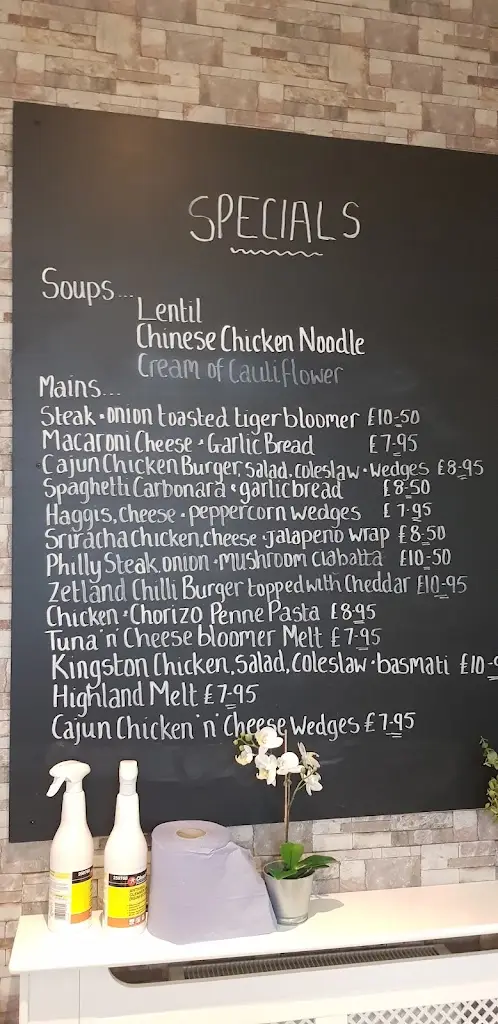 SPECIALS
Soups...
Lentil
Chinese Chicken Noodle
Cream of Cauliflower
Mains...
Steak • onion toasted tiger bloomer £10-50
Macaroni Cheese • Garlic Bread £7-95
Cajun Chicken Burger, salad, coleslaw • wedges £8-95
Spaghetti Carbonara • garlic bread £8-50
Haggis, cheese • peppercorn wedges £7-95
Sriracha Chicken, cheese • jalapeno wrap £8-50
Philly Steak, onion • mushroom ciabatta £10-50
Zetland Chilli Burger topped with Cheddar £10-95
Chicken • Chorizo Penne Pasta £8-95
Tuna 'n' Cheese bloomer Melt £7-95
Kingston Chicken, Salad, Coleslaw • basmati £10-9
Highland Melt £7-95
Cajun Chicken 'n' Cheese Wedges £7-95